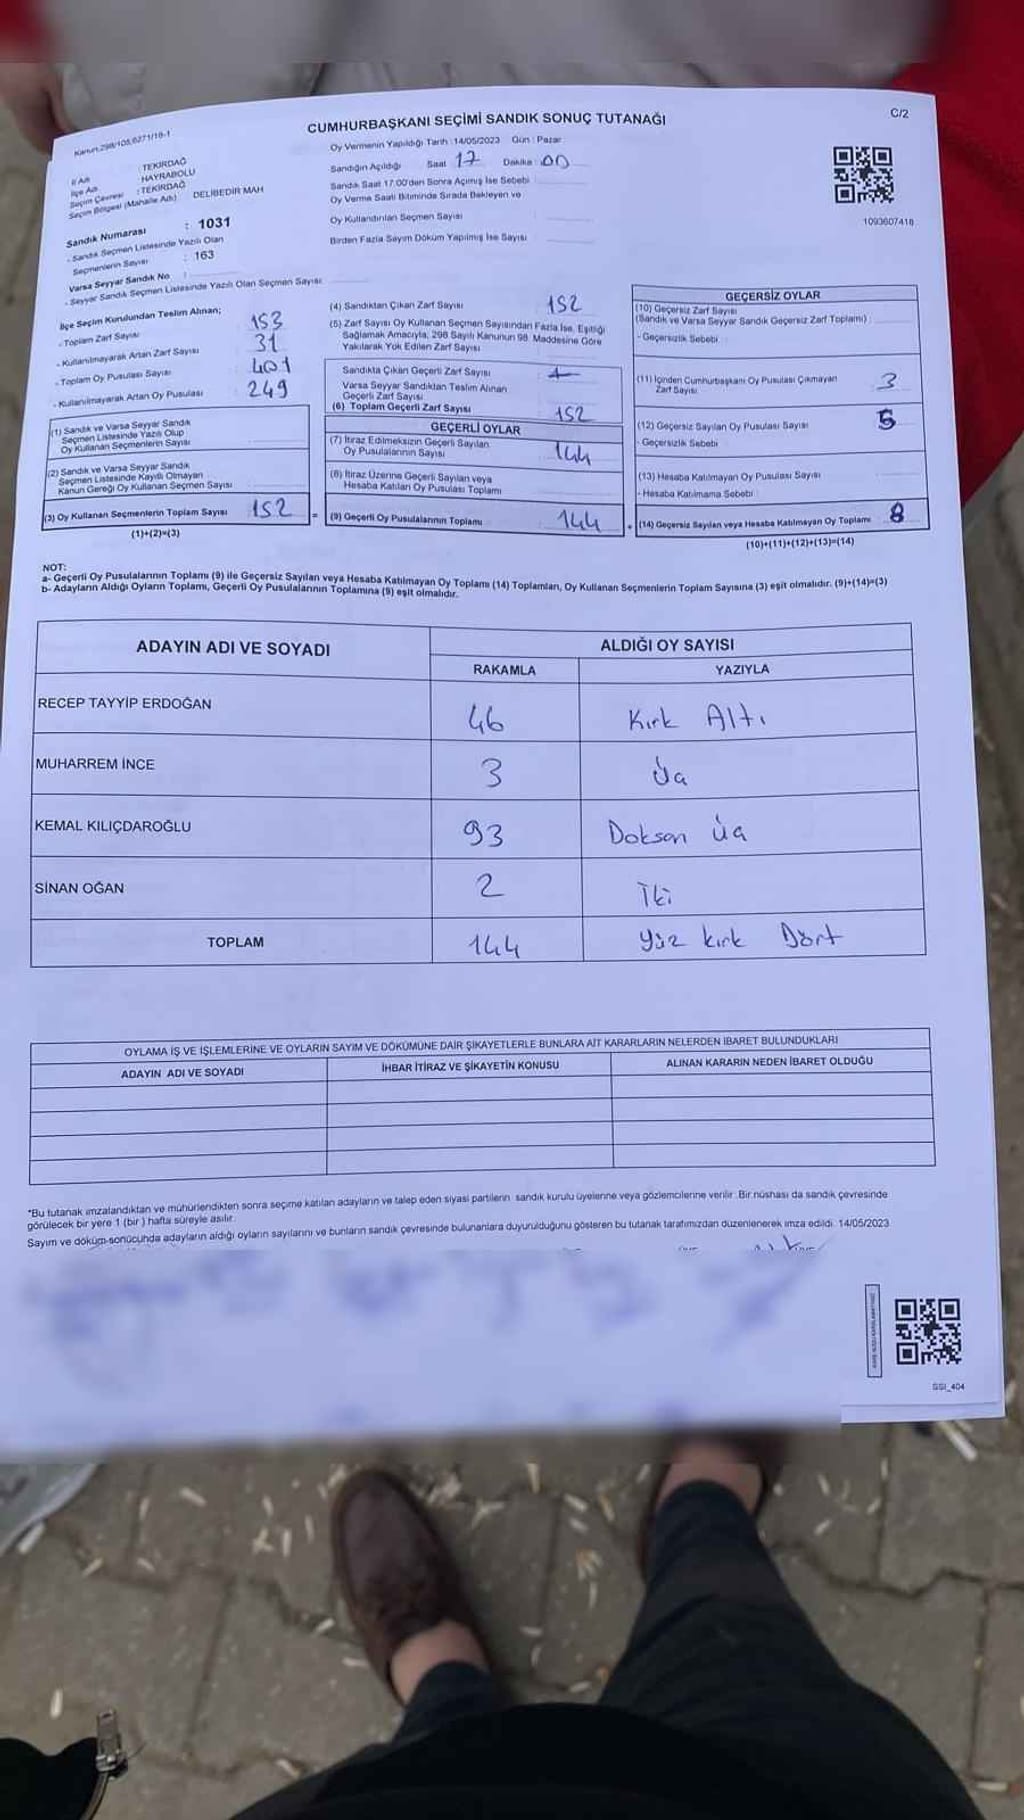 C/2
CUMHURBAŞKANI SEÇİMİ SANDIK SONUÇ TUTANAĞI
Kanun:298/105,6271/18-1
Oy Vermenin Yapıldığı Tarih : 14/05/2023 Gün : Pazar
İl Adı : TEKİRDAĞ
İlçe Adı : HAYRABOLU
Seçim Çevresi : TEKİRDAĞ
Seçim Bölgesi (Mahalle Adı) : DELİBEDİR MAH
Sandık Numarası : 1031
- Sandık Seçmen Listesinde Yazılı Olan
Seçmenlerin Sayısı : 163
Varsa Seyyar Sandık No :
- Seyyar Sandık Seçmen Listesinde Yazılı Olan Seçmen Sayısı :
Sandığın Açıldığı Saat : 17 Dakika : 00
Sandık Saat 17.00'den Sonra Açılmış İse Sebebi :
Oy Verme Saati Bitiminde Sırada Bekleyen ve
Oy Kullandırılan Seçmen Sayısı
Birden Fazla Sayım Döküm Yapılmış İse Sayısı :
1093607418
İlçe Seçim Kurulundan Teslim Alınan;
- Toplam Zarf Sayısı 153
- Kullanılmayarak Artan Zarf Sayısı 31
- Toplam Oy Pusulası Sayısı 401
- Kullanılmayarak Artan Oy Pusulası 249
(1) Sandık ve Varsa Seyyar Sandık
Seçmen Listesinde Yazılı Olup
Oy Kullanan Seçmenlerin Sayısı
(2) Sandık ve Varsa Seyyar Sandık
Seçmen Listesinde Kayıtlı Olmayan
Kanun Gereği Oy Kullanan Seçmen Sayısı
(3) Oy Kullanan Seçmenlerin Toplam Sayısı 152 =
(1)+(2)=(3)
(4) Sandıktan Çıkan Zarf Sayısı 152
(5) Zarf Sayısı Oy Kullanan Seçmen Sayısından Fazla İse, Eşitliği
Sağlamak Amacıyla, 298 Sayılı Kanunun 98. Maddesine Göre
Yakılarak Yok Edilen Zarf Sayısı
Sandıkta Çıkan Geçerli Zarf Sayısı
Varsa Seyyar Sandıktan Teslim Alınan
Geçerli Zarf Sayısı
(6) Toplam Geçerli Zarf Sayısı 152
GEÇERLİ OYLAR
(7) İtiraz Edilmeksizin Geçerli Sayılan
Oy Pusulalarının Sayısı 144
(8) İtiraz Üzerine Geçerli Sayılan veya
Hesaba Katılan Oy Pusulası Toplamı
(9) Geçerli Oy Pusulalarının Toplamı 144 +
GEÇERSİZ OYLAR
(10) Geçersiz Zarf Sayısı
(Sandık ve Varsa Seyyar Sandık Geçersiz Zarf Toplamı) :
- Geçersizlik Sebebi :
(11) İçinden Cumhurbaşkanı Oy Pusulası Çıkmayan
Zarf Sayısı 3
(12) Geçersiz Sayılan Oy Pusulası Sayısı 5
- Geçersizlik Sebebi
(13) Hesaba Katılmayan Oy Pusulası Sayısı
- Hesaba Katılmama Sebebi
(14) Geçersiz Sayılan veya Hesaba Katılmayan Oy Toplamı 8
(10)+(11)+(12)+(13)=(14)
NOT:
a- Geçerli Oy Pusulalarının Toplamı (9) ile Geçersiz Sayılan veya Hesaba Katılmayan Oy Toplamı (14) Toplamları, Oy Kullanan Seçmenlerin Toplam Sayısına (3) eşit olmalıdır. (9)+(14)=(3)
b- Adayların Aldığı Oyların Toplamı, Geçerli Oy Pusulalarının Toplamına (9) eşit olmalıdır.
ADAYIN ADI VE SOYADI ALDIĞI OY SAYISI
RAKAMLA YAZIYLA
RECEP TAYYİP ERDOĞAN 46 Kırk Altı
MUHARREM İNCE 3 Üç
KEMAL KILIÇDAROĞLU 93 Doksan üç
SİNAN OĞAN 2 İki
TOPLAM 144 Yüz kırk Dört
OYLAMA İŞ VE İŞLEMLERİNE VE OYLARIN SAYIM VE DÖKÜMÜNE DAİR ŞİKAYETLERLE BUNLARA AİT KARARLARIN NELERDEN İBARET BULUNDUKLARI
ADAYIN ADI VE SOYADI İHBAR İTİRAZ VE ŞİKAYETİN KONUSU ALINAN KARARIN NEDEN İBARET OLDUĞU
*Bu tutanak imzalandıktan ve mühürlendikten sonra seçime katılan adayların ve talep eden siyasi partilerin sandık kurulu üyelerine veya gözlemcilerine verilir. Bir nüshası da sandık çevresinde
görülecek bir yere 1 (bir ) hafta süreyle asılır.
Sayım ve döküm sonucunda adayların aldığı oyların sayılarını ve bunların sandık çevresinde bulunanlara duyurulduğunu gösteren bu tutanak tarafımızdan düzenlenerek imza edildi. 14/05/2023
GSI_404